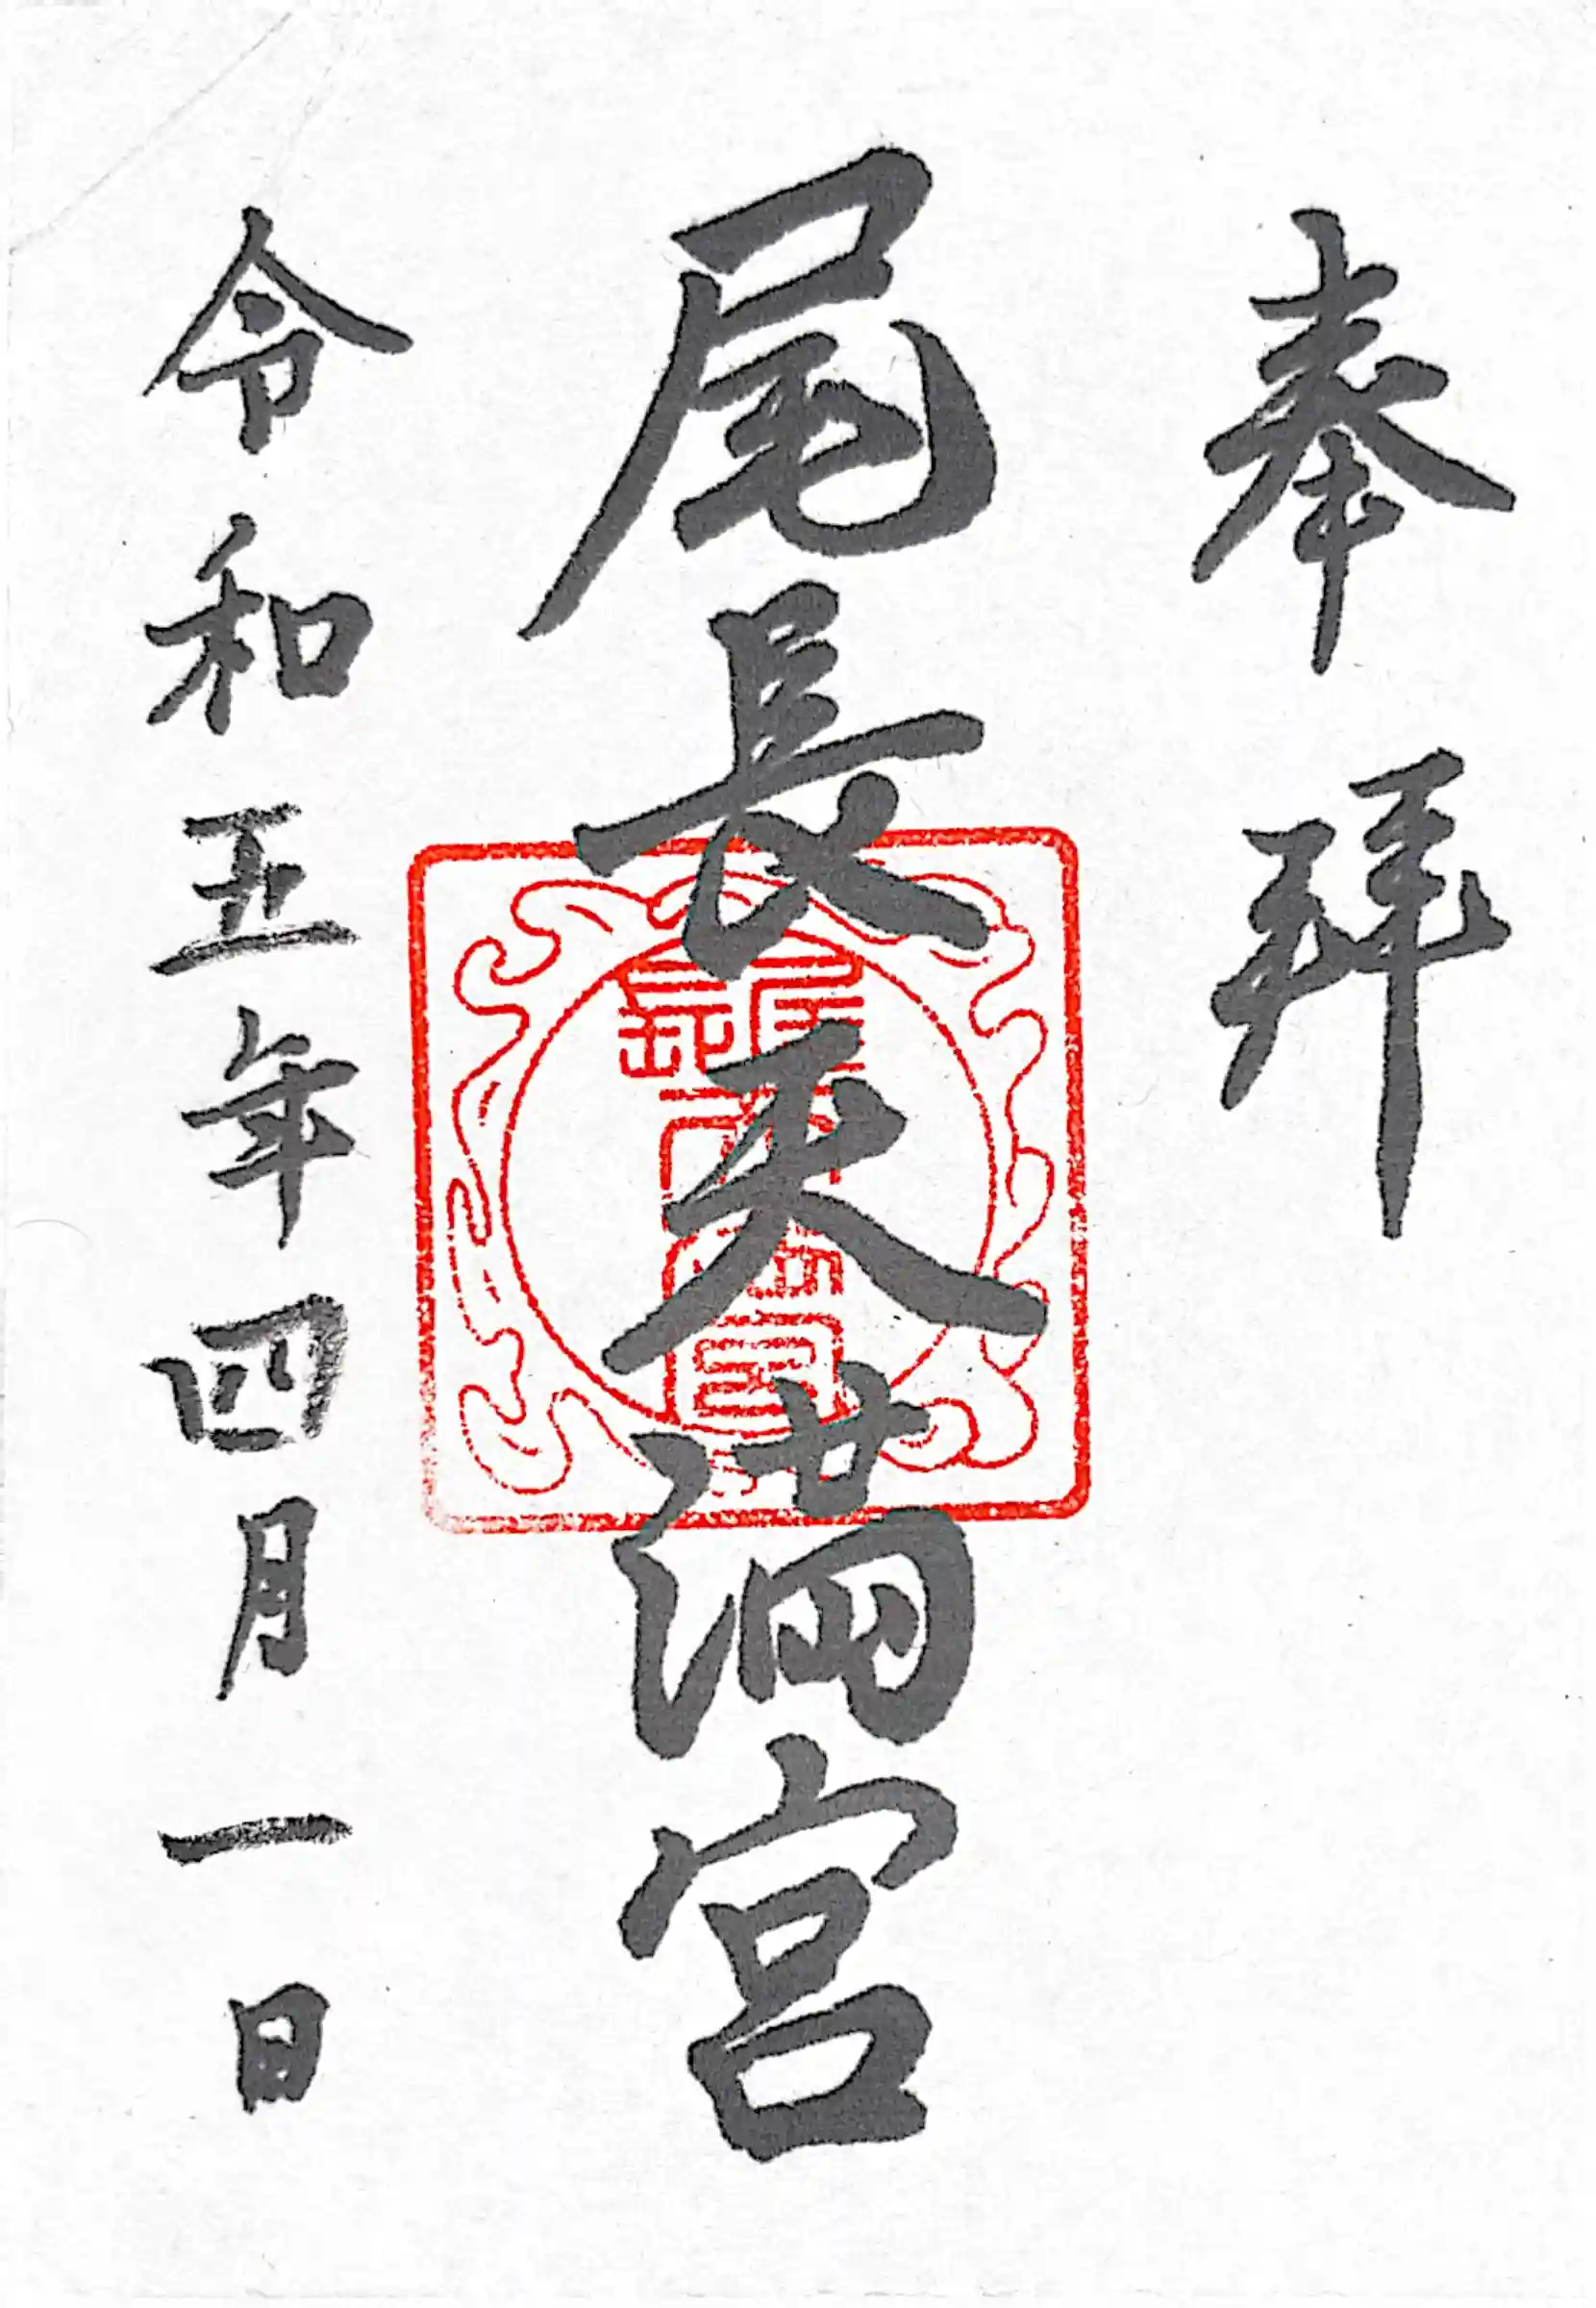 奉拝
尾長天満宮
令和五年四月一日